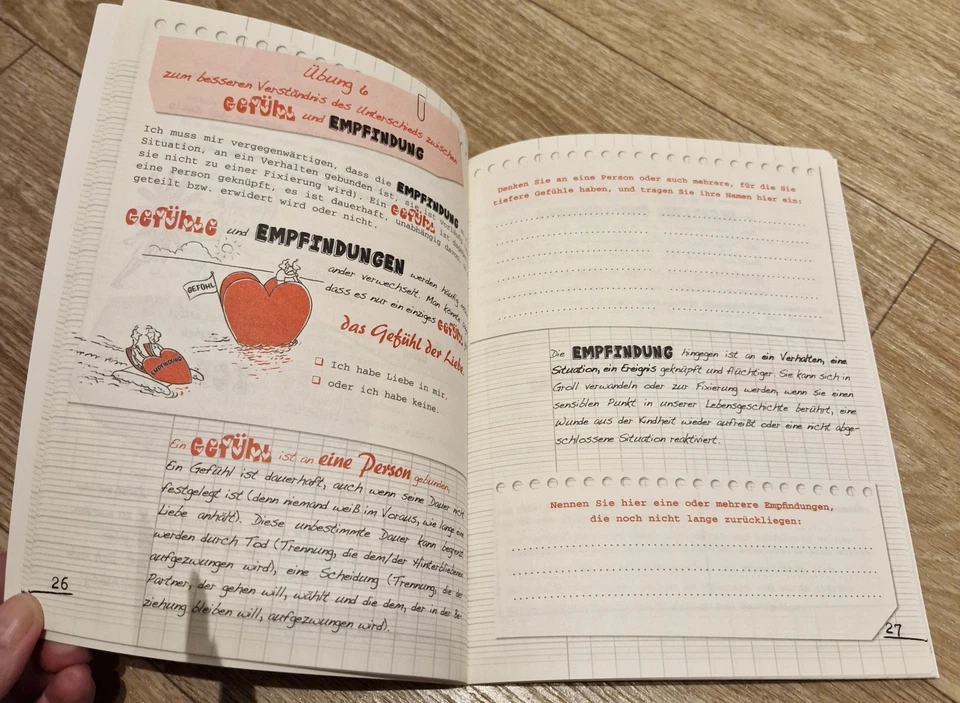 Übung 6
zum besseren Verständnis des Unterschieds zwischen
GEFÜHL und EMPFINDUNG
Ich muss mir vergegenwärtigen, dass die EMPFINDUNG
Situation, an ein Verhalten gebunden ist, sie ist
sie nicht zu einer Fixierung wird). Ein GEFÜHL ist
eine Person geknüpft, es ist dauerhaft, unabhängig davon,
geteilt bzw. erwidert wird oder nicht.
GEFÜHLE und EMPFINDUNGEN werden häufig
ander verwechselt. Man könnte
dass es nur ein einziges GEFÜHL
das Gefühl der Liebe.
GEFÜHL
EMPFINDUNG
❑ Ich habe Liebe in mir,
❑ oder ich habe keine.
Ein GEFÜHL ist an eine Person gebunden.
Ein Gefühl ist dauerhaft, auch wenn seine Dauer nicht
festgelegt ist (denn niemand weiß im Voraus, wie lange eine
Liebe anhält). Diese unbestimmte Dauer kann begrenzt
werden durch Tod (Trennung, die dem/der Hinterbliebenen
aufgezwungen wird), eine Scheidung (Trennung, die der
Partner, der gehen will, wählt und die dem, der in der Be-
ziehung bleiben will, aufgezwungen wird).
26
Denken Sie an eine Person oder auch mehrere, für die Sie
tiefere Gefühle haben, und tragen Sie ihre Namen hier ein:
Die EMPFINDUNG hingegen ist an ein Verhalten, eine
Situation, ein Ereignis geknüpft und flüchtiger. Sie kann sich in
Groll verwandeln oder zur Fixierung werden, wenn sie einen
sensiblen Punkt in unserer Lebensgeschichte berührt, eine
Wunde aus der Kindheit wieder aufreißt oder eine nicht abge-
schlossene Situation reaktiviert.
Nennen Sie hier eine oder mehrere Empfindungen,
die noch nicht lange zurückliegen:
27